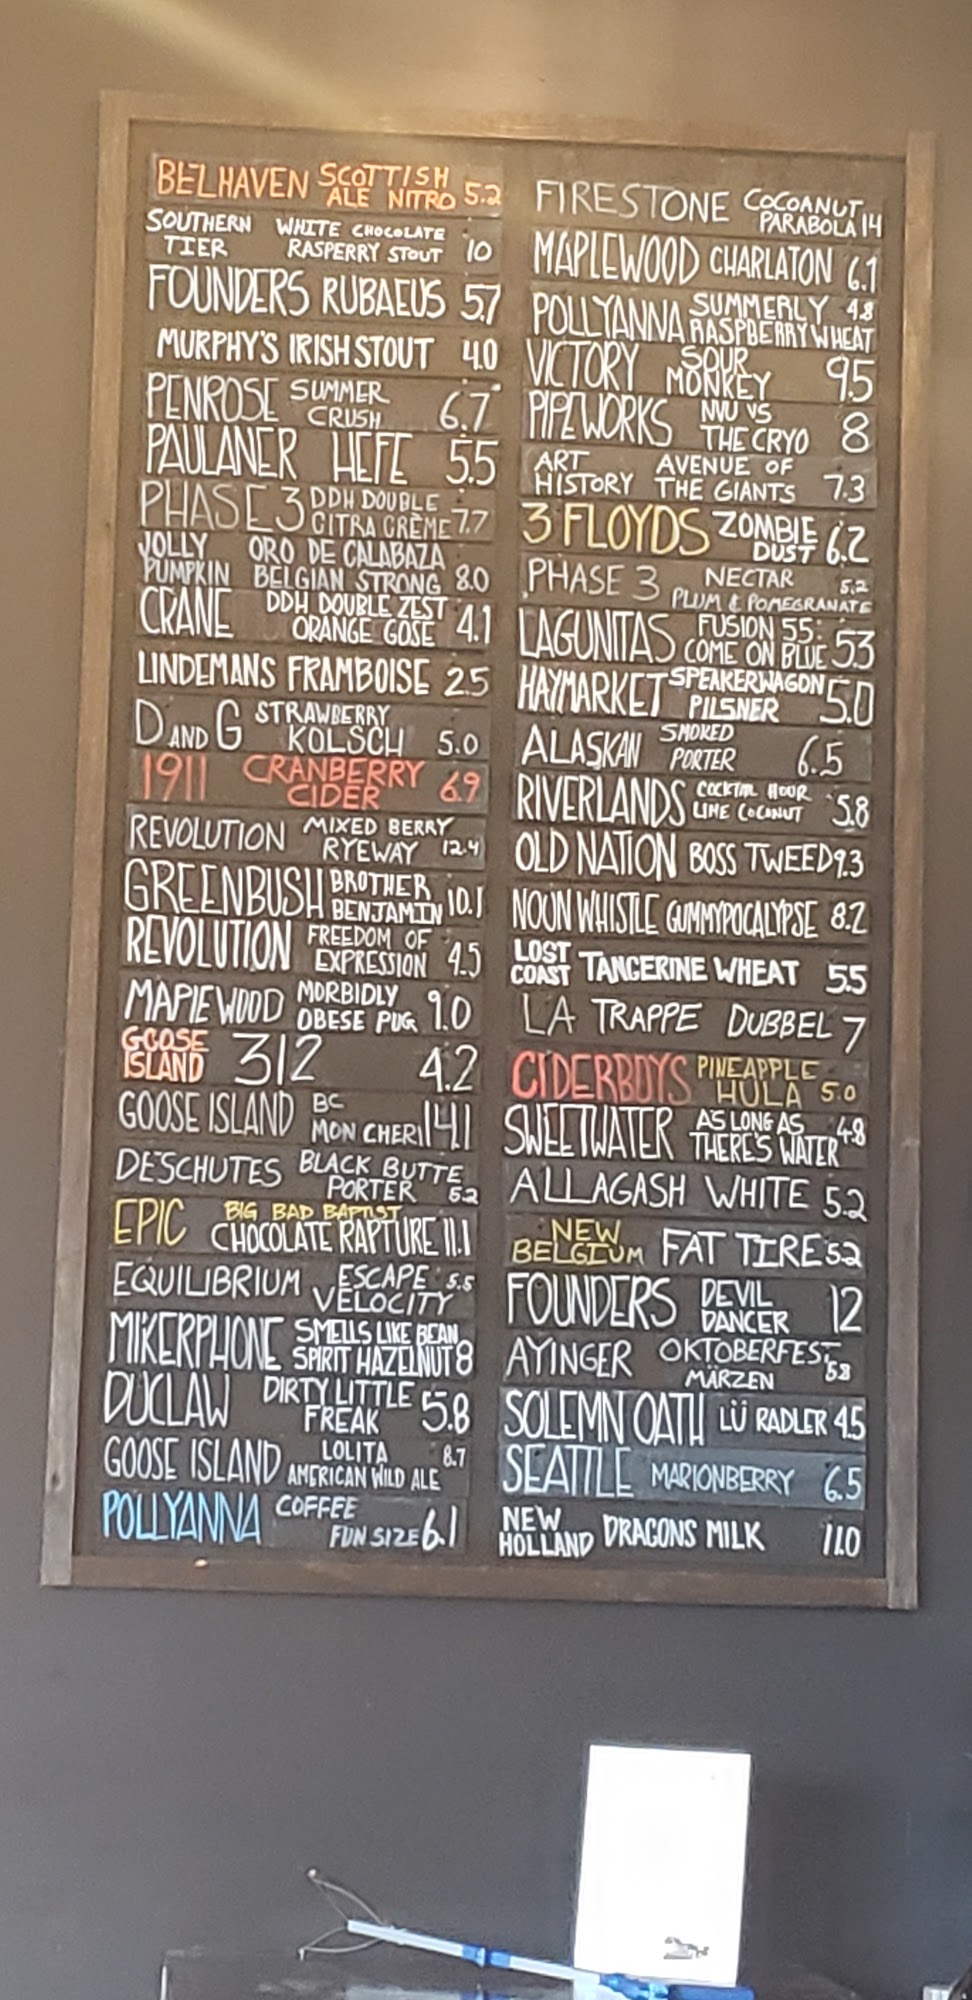 BELHAVEN SCOTTISH ALE NITRO 5.2
SOUTHERN TIER WHITE CHOCOLATE RASPERRY STOUT 10
FOUNDERS RUBAEUS 5.7
MURPHY'S IRISH STOUT 4.0
PENROSE SUMMER CRUSH 6.7
PAULANER HEFE 5.5
PHASE 3 DDH DOUBLE CITRA CRÈME 7.7
JOLLY PUMPKIN ORO DE CALABAZA BELGIAN STRONG 8.0
CRANE DDH DOUBLE ZEST ORANGE GOSE 4.1
LINDEMANS FRAMBOISE 2.5
D AND G STRAWBERRY KOLSCH 5.0
1911 CRANBERRY CIDER 6.9
REVOLUTION MIXED BERRY RYEWAY 12.4
GREENBUSH BROTHER BENJAMIN 10.1
REVOLUTION FREEDOM OF EXPRESSION 4.5
MAPLEWOOD MORBIDLY OBESE PUG 9.0
GOOSE ISLAND 312 4.2
GOOSE ISLAND BC MON CHERI 14.1
DESCHUTES BLACK BUTTE PORTER 5.2
EPIC BIG BAD BAPTIST CHOCOLATE RAPTURE 11.1
EQUILIBRIUM ESCAPE VELOCITY 5.5
MIKERPHONE SMELLS LIKE BEAN SPIRIT HAZELNUT 8
DUCLAW DIRTY LITTLE FREAK 5.8
GOOSE ISLAND LOLITA AMERICAN WILD ALE 8.7
POLLYANNA COFFEE FUN SIZE 6.1
FIRESTONE COCOANUT PARABOLA 14
MAPLEWOOD CHARLATON 6.1
POLLYANNA SUMMERLY RASPBERRY WHEAT 4.8
VICTORY SOUR MONKEY 9.5
PIPEWORKS NVU VS THE CRYO 8
ART HISTORY AVENUE OF THE GIANTS 7.3
3 FLOYDS ZOMBIE DUST 6.2
PHASE 3 NECTAR PLUM & POMEGRANATE 5.2
LAGUNITAS FUSION 55: COME ON BLUE 5.3
HAYMARKET SPEAKERWAGON PILSNER 5.0
ALASKAN SMOKED PORTER 6.5
RIVERLANDS COCKTAIL HOUR LIME COCONUT 5.8
OLD NATION BOSS TWEED 9.3
NOON WHISTLE GUMMYPOCALYPSE 8.2
LOST COAST TANGERINE WHEAT 5.5
LA TRAPPE DUBBEL 7
CIDERBOYS PINEAPPLE HULA 5.0
SWEETWATER AS LONG AS THERE'S WATER 4.8
ALLAGASH WHITE 5.2
NEW BELGIUM FAT TIRE 5.2
FOUNDERS DEVIL DANCER 12
AYINGER OKTOBERFEST MÄRZEN 5.8
SOLEMN OATH LÜ RADLER 4.5
SEATTLE MARIONBERRY 6.5
NEW HOLLAND DRAGONS MILK 11.0